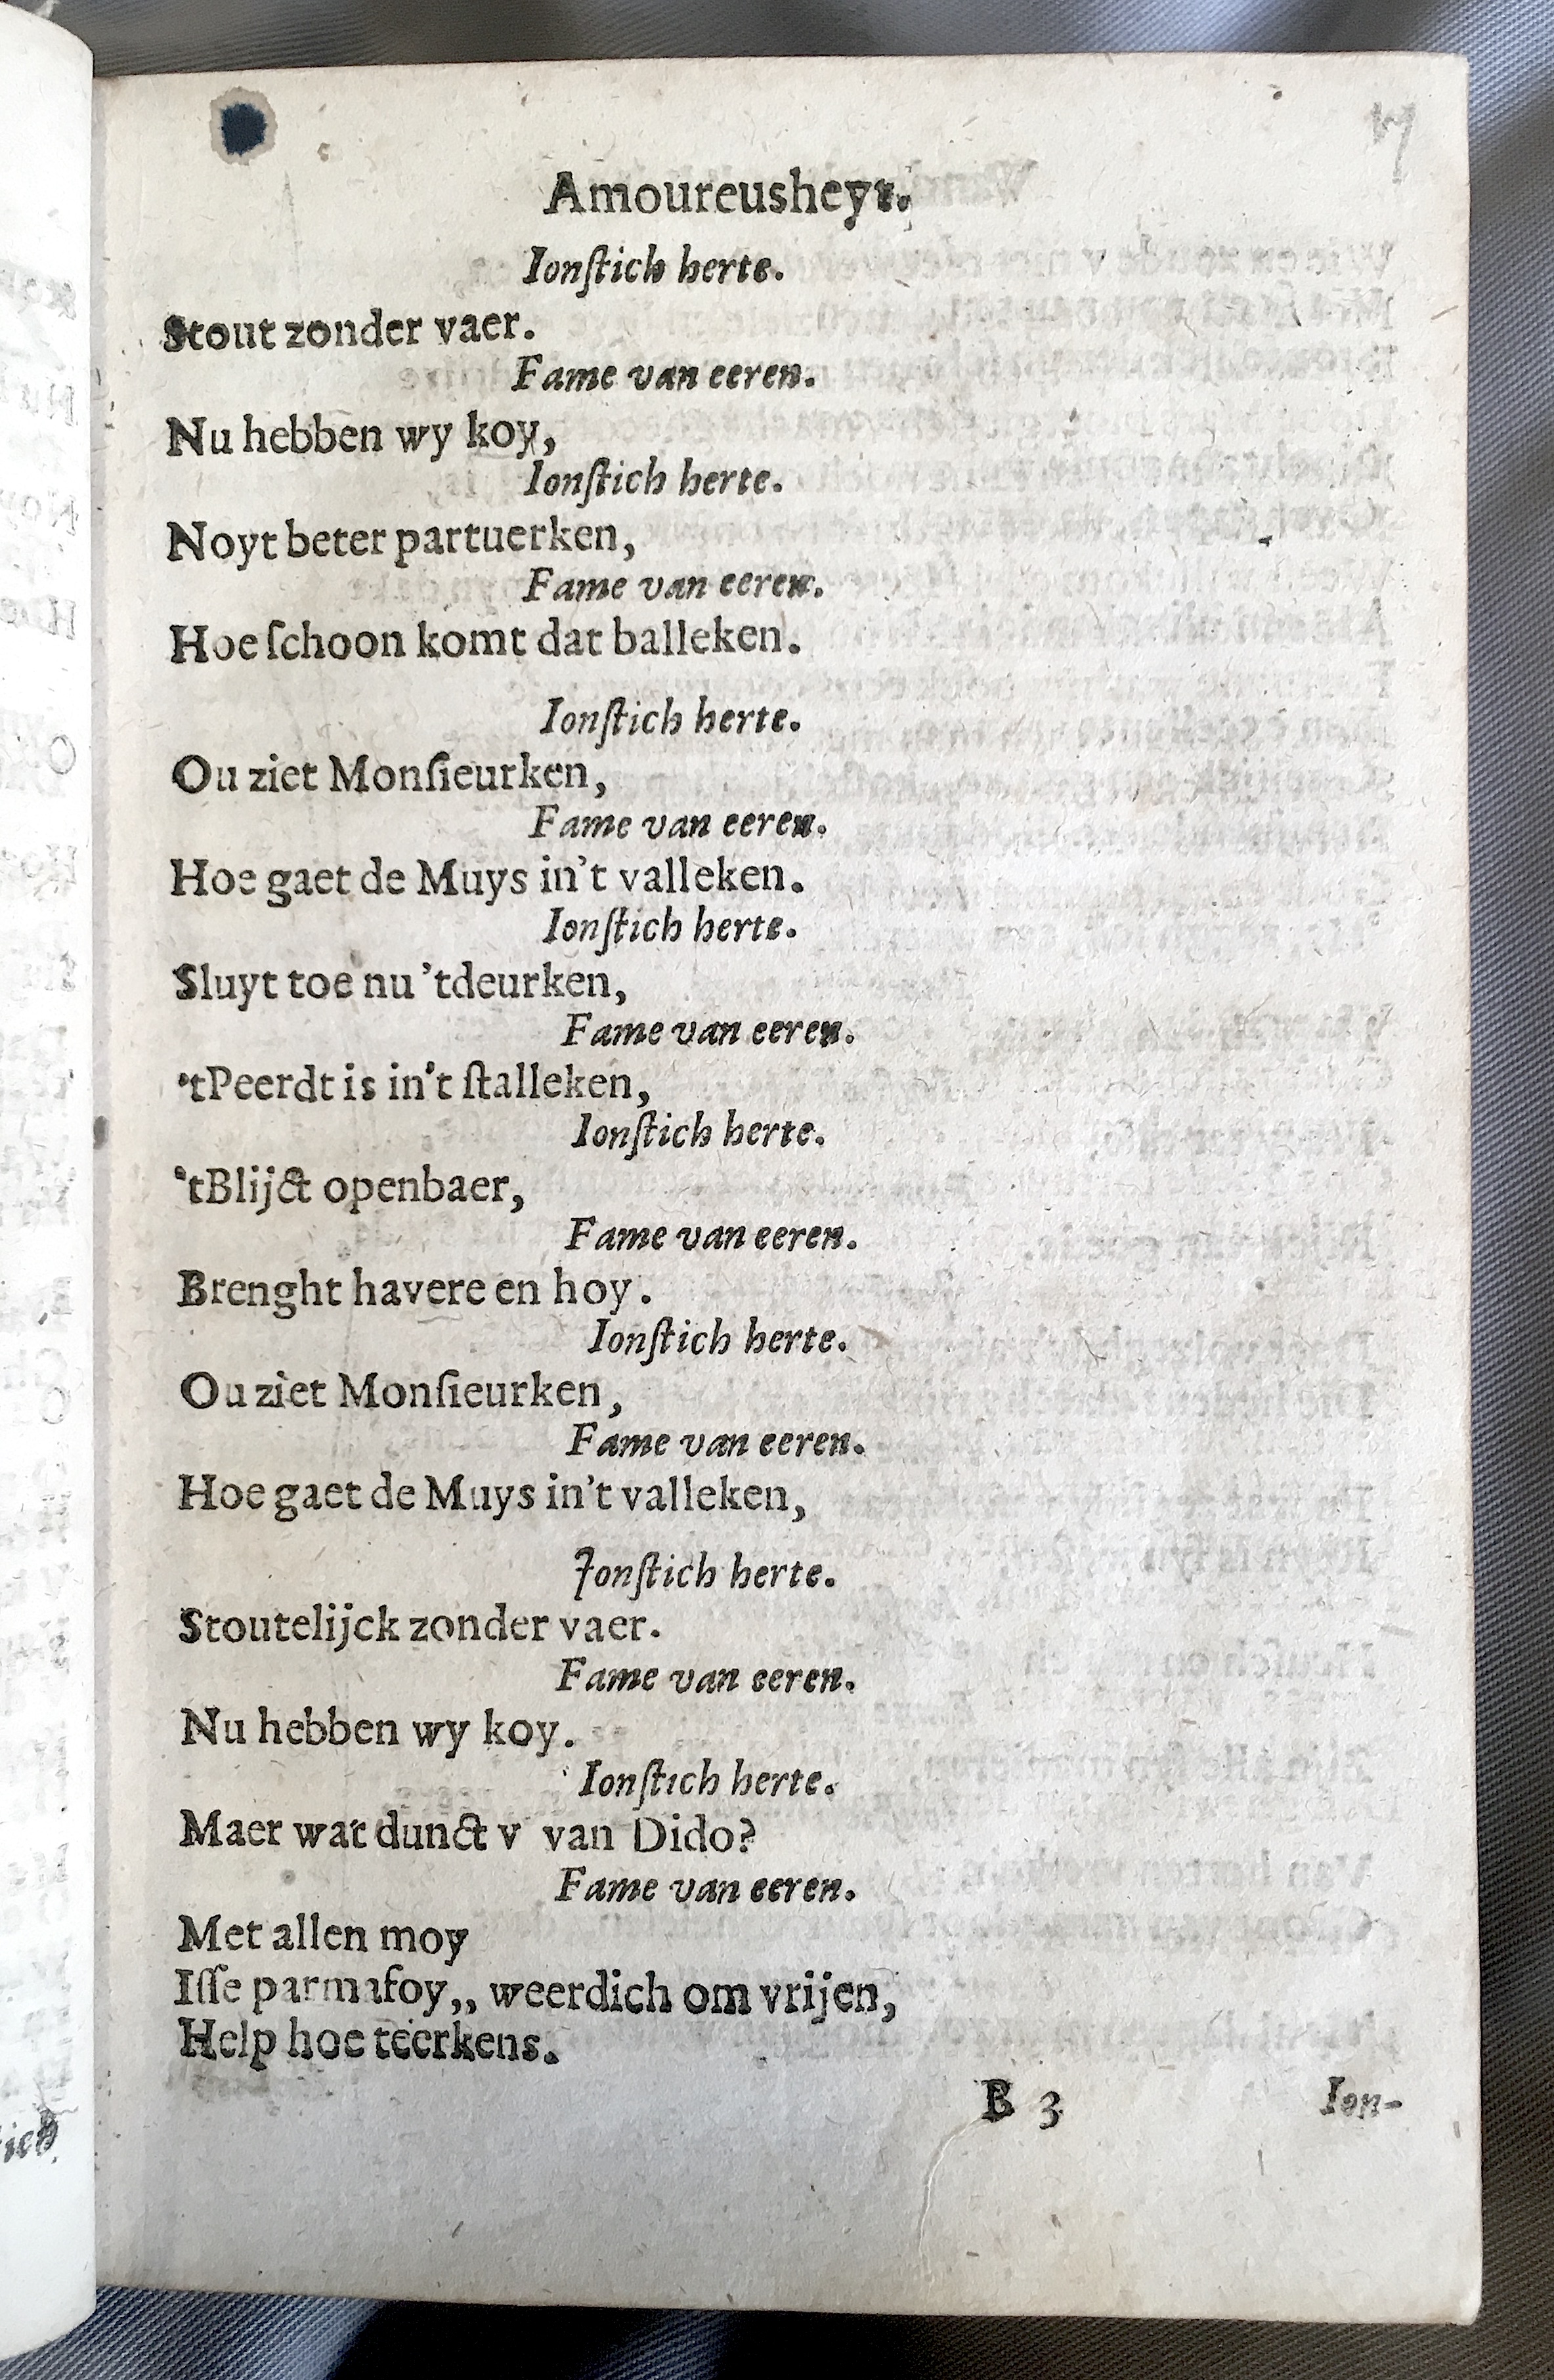 Amoureusheyt.
Ionſtich herte.
Stout zonder vaer.
Fame van eeren.
Nu hebben wy koy,
Ionſtich herte.
Noyt beter partuerken,
Fame van eeren.
Hoe ſchoon komt dat balleken.
Ionſtich herte.
Ou ziet Monſieurken,
Fame van eeren.
Hoe gaet de Muys in't valleken.
Ionſtich herte.
Sluyt toe nu 'tdeurken,
Fame van eeren.
'tPeerdt is in't ſtalleken,
Ionſtich herte.
'tBlijct openbaer,
Fame van eeren.
Brenght havere en hoy.
Ionſtich herte.
Ou ziet Monſieurken,
Fame van eeren.
Hoe gaet de Muys in't valleken,
Jonſtich herte.
Stoutelijck zonder vaer.
Fame van eeren.
Nu hebben wy koy.
Ionſtich herte.
Maer wat dunct v van Dido?
Fame van eeren.
Met allen moy
Iſſe parmafoy,, weerdich om vrijen,
Help hoe teerkens.
B 3 Ion-